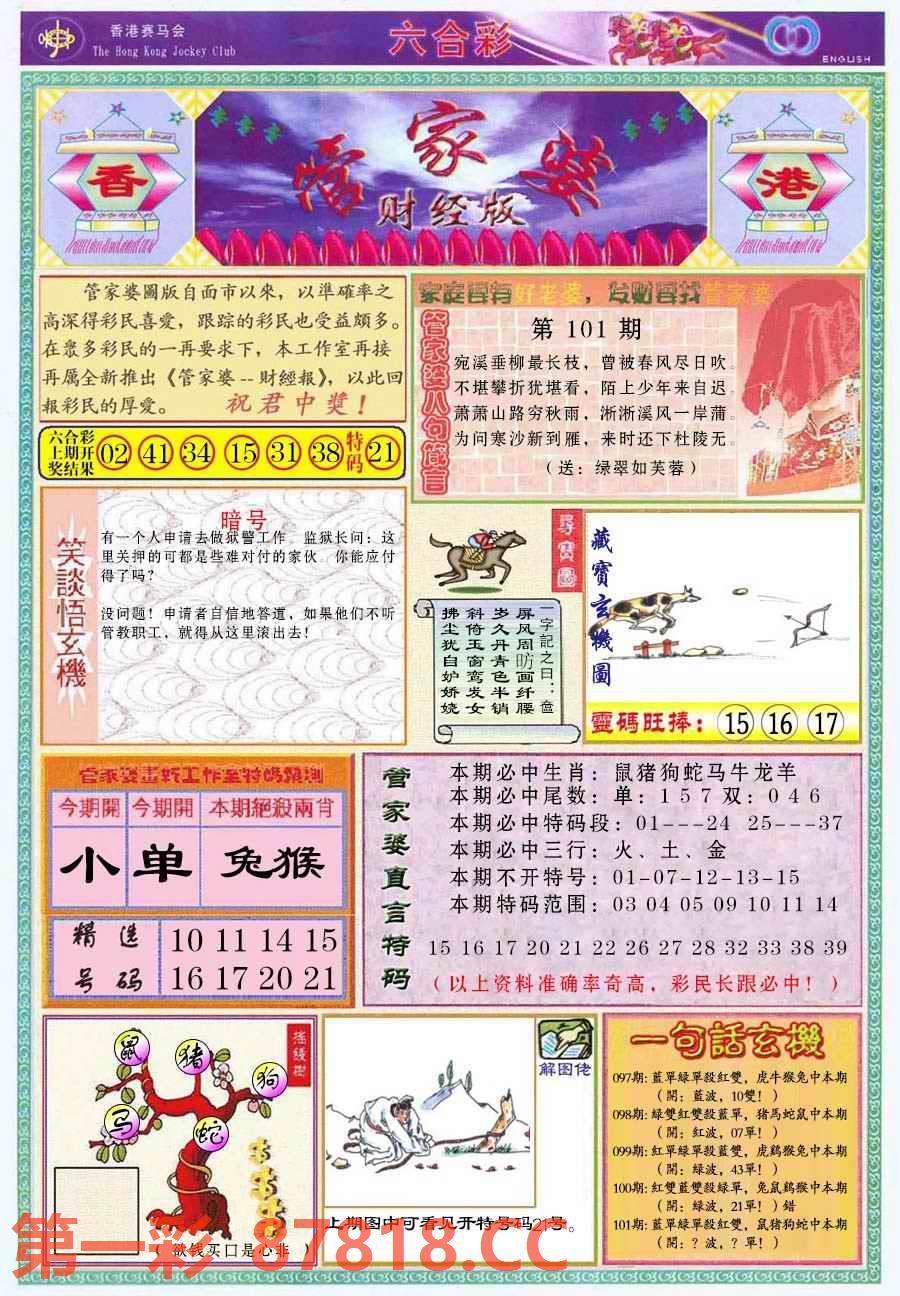 香港赛马会
The Hong Kong Jockey Club
六合彩
ENGLISH
香
管家婆
财经版
港
管家婆圖版自面市以來，以準確率之
高深得彩民喜愛，跟踪的彩民也受益頗多。
在眾多彩民的一再要求下，本工作室再接
再厲全新推出《管家婆--財經報》，以此回
報彩民的厚愛。 祝君中獎！
六合彩
上期开
奖结果
02 41 34 15 31 38 特码 21
家庭要有好老婆，发财要找管家婆
管家婆八句箴言
第 101 期
宛溪垂柳最长枝，曾被春风尽日吹。
不堪攀折犹堪看，陌上少年来自迟。
萧萧山路穷秋雨，淅淅溪风一岸蒲。
为问寒沙新到雁，来时还下杜陵无。
（送：绿翠如芙蓉）
笑談悟玄機
暗号
有一个人申请去做狱警工作。监狱长问：这
里关押的可都是些难对付的家伙。你能应付
得了吗？
没问题！申请者自信地答道，如果他们不听
管教职工，就得从这里滚出去！
尋寶圖
一字記之曰：
屏风周昉画纤腰
岁久丹青色半销
斜倚玉窗鸾发女
拂尘犹自妒娇娆
藏寶玄機圖
靈碼旺捧：15 16 17
管家婆畫報工作室特碼預測
今期開 今期開 本期絕殺兩肖
小 单 兔猴
精选
号码
10 11 14 15
16 17 20 21
管家婆直言特码
本期必中生肖：鼠猪狗蛇马牛龙羊
本期必中尾数：单：1 5 7 双：0 4 6
本期必中特码段：01---24 25---37
本期必中三行：火、土、金
本期不开特号：01-07-12-13-15
本期特码范围：03 04 05 09 10 11 14
15 16 17 20 21 22 26 27 28 32 33 38 39
（以上资料准确率奇高，彩民长跟必中！）
搖錢樹
鼠
猪
狗
马
蛇
（欲钱买口是心非）
解图佬
上期图中可看见开特号码21号。
一句話玄機
097期：藍單綠單殺紅雙，虎牛猴兔中本期
（開：藍波，10雙！）
098期：綠雙紅雙殺藍單，猪馬蛇鼠中本期
（開：紅波，07單！）
099期：紅單綠單殺藍雙，虎鷄猴兔中本期
（開：綠波，43單！）
100期：紅雙藍雙殺綠單，兔鼠鷄猴中本期
（開：綠波，21單！）錯
101期：藍單綠單殺紅雙，鼠猪狗蛇中本期
（開：？波，？單！）
第一彩 87818.CC